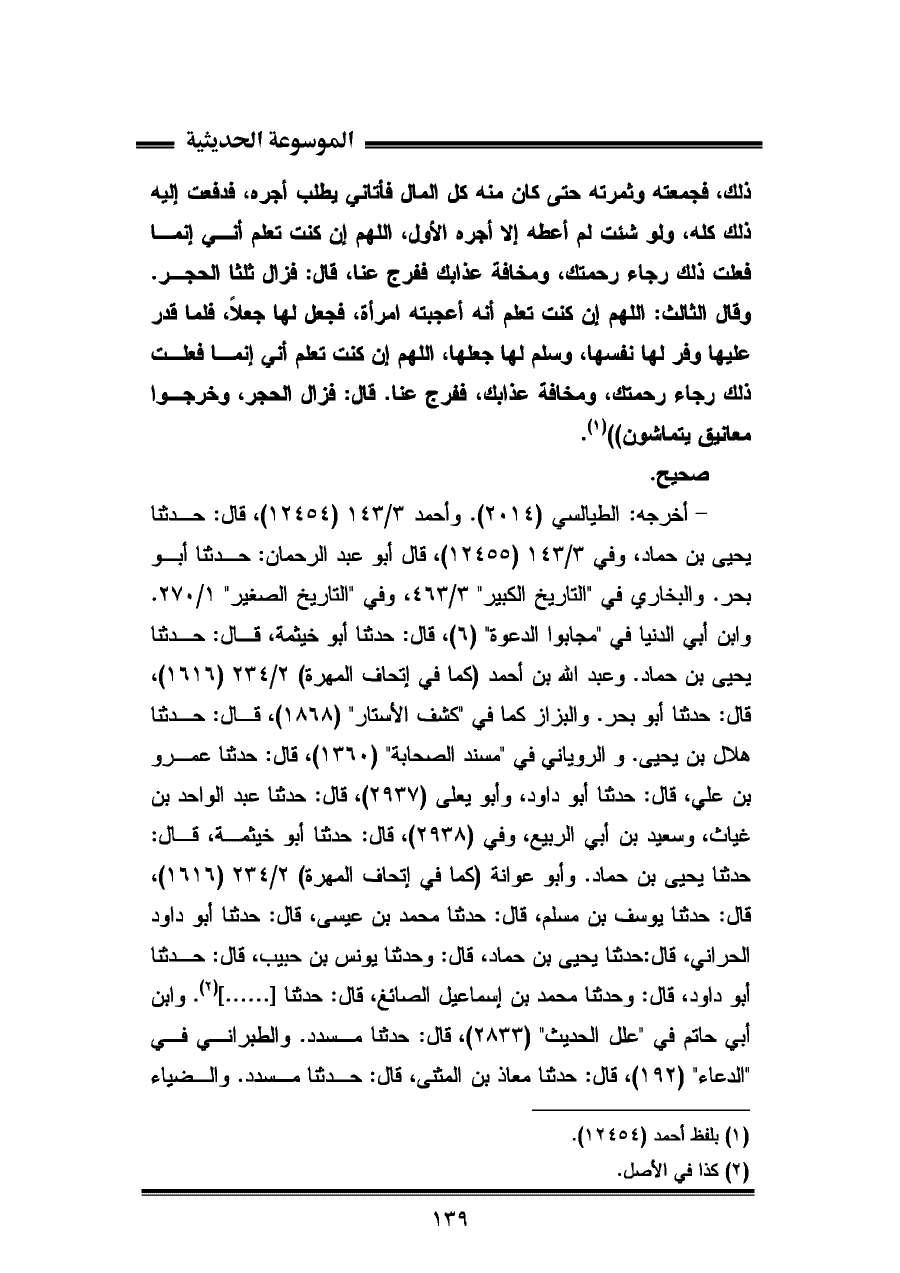 الموسوعة الحديثية
ذلك، فجمعته وثمرته حتى كان منه كل المال فأتاني يطلب أجره، فدفعت إليه
ذلك كله، ولو شئت لم أعطه إلا أجره الأول، اللهم إن كنت تعلم أنـــي إنمـــا
فعلت ذلك رجاء رحمتك، ومخافة عذابك ففرج عنا، قال: فزال ثلثا الحجـــر.
وقال الثالث: اللهم إن كنت تعلم أنه أعجبته امرأة، فجعل لها جعلاً، فلما قدر
عليها وفر لها نفسها، وسلم لها جعلها، اللهم إن كنت تعلم أني إنمـــا فعلـــت
ذلك رجاء رحمتك، ومخافة عذابك، ففرج عنا. قال: فزال الحجر، وخرجـــوا
معانيق يتماشون))(١).
صحيح.
– أخرجه: الطيالسي (٢٠١٤). وأحمد ١٤٣/٣ (١٢٤٥٤)، قال: حـــدثنا
يحيى بن حماد، وفي ١٤٣/٣ (١٢٤٥٥)، قال أبو عبد الرحمان: حـــدثنا أبـــو
بحر. والبخاري في "التاريخ الكبير" ٤٦٣/٣، وفي "التاريخ الصغير" ٢٧٠/١.
وابن أبي الدنيا في "مجابوا الدعوة" (٦)، قال: حدثنا أبو خيثمة، قـــال: حـــدثنا
يحيى بن حماد. وعبد الله بن أحمد (كما في إتحاف المهرة) ٢٣٤/٢ (١٦١٦)،
قال: حدثنا أبو بحر. والبزاز كما في "كشف الأستار" (١٨٦٨)، قـــال: حـــدثنا
هلال بن يحيى. و الروياني في "مسند الصحابة" (١٣٦٠)، قال: حدثنا عمـــرو
بن علي، قال: حدثنا أبو داود، وأبو يعلى (٢٩٣٧)، قال: حدثنا عبد الواحد بن
غياث، وسعيد بن أبي الربيع، وفي (٢٩٣٨)، قال: حدثنا أبو خيثمـــة، قـــال:
حدثنا يحيى بن حماد. وأبو عوانة (كما في إتحاف المهرة) ٢٣٤/٢ (١٦١٦)،
قال: حدثنا يوسف بن مسلم، قال: حدثنا محمد بن عيسى، قال: حدثنا أبو داود
الحراني، قال:حدثنا يحيى بن حماد، قال: وحدثنا يونس بن حبيب، قال: حـــدثنا
أبو داود، قال: وحدثنا محمد بن إسماعيل الصائغ، قال: حدثنا [......](٢). وابن
أبي حاتم في "علل الحديث" (٢٨٣٣)، قال: حدثنا مـــسدد. والطبرانـــي فـــي
"الدعاء" (١٩٢)، قال: حدثنا معاذ بن المثنى، قال: حـــدثنا مـــسدد. والـــضياء
(١) بلفظ أحمد (١٢٤٥٤).
(٢) كذا في الأصل.
١٣٩